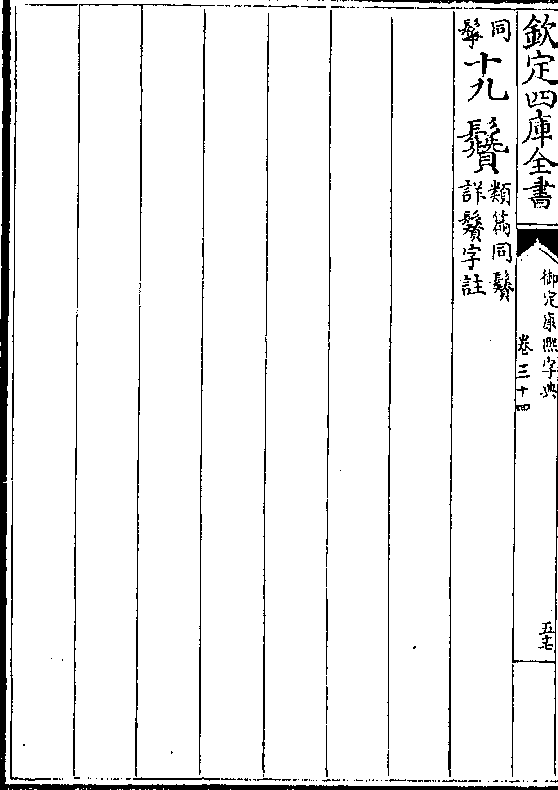 欽定四庫全書
御定康熙字典
卷三十四
五十七
同
十九
䰖
類篇同鬢
詳鬢字註